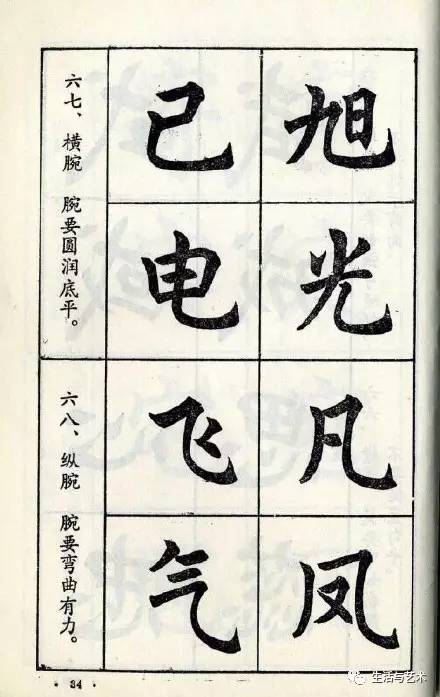 六七、横腕 腕要圆润底平。
旭
已
光
电
六八、纵腕 腕要弯曲有力。
凡
飞
凤
气
· 34 ·
生活与艺术